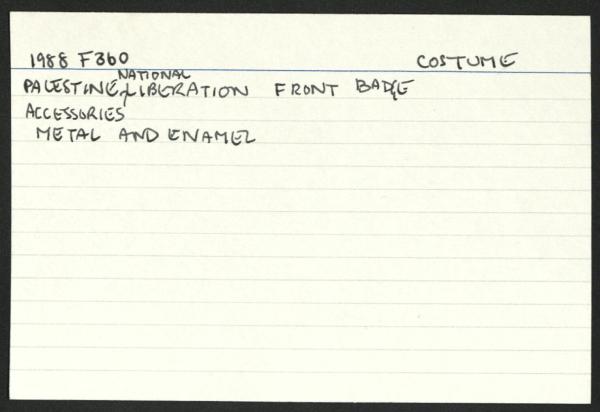 1988 F360 COSTUME
PALESTINE NATIONAL LIBERATION FRONT BADGE
ACCESSORIES
METAL AND ENAMEL